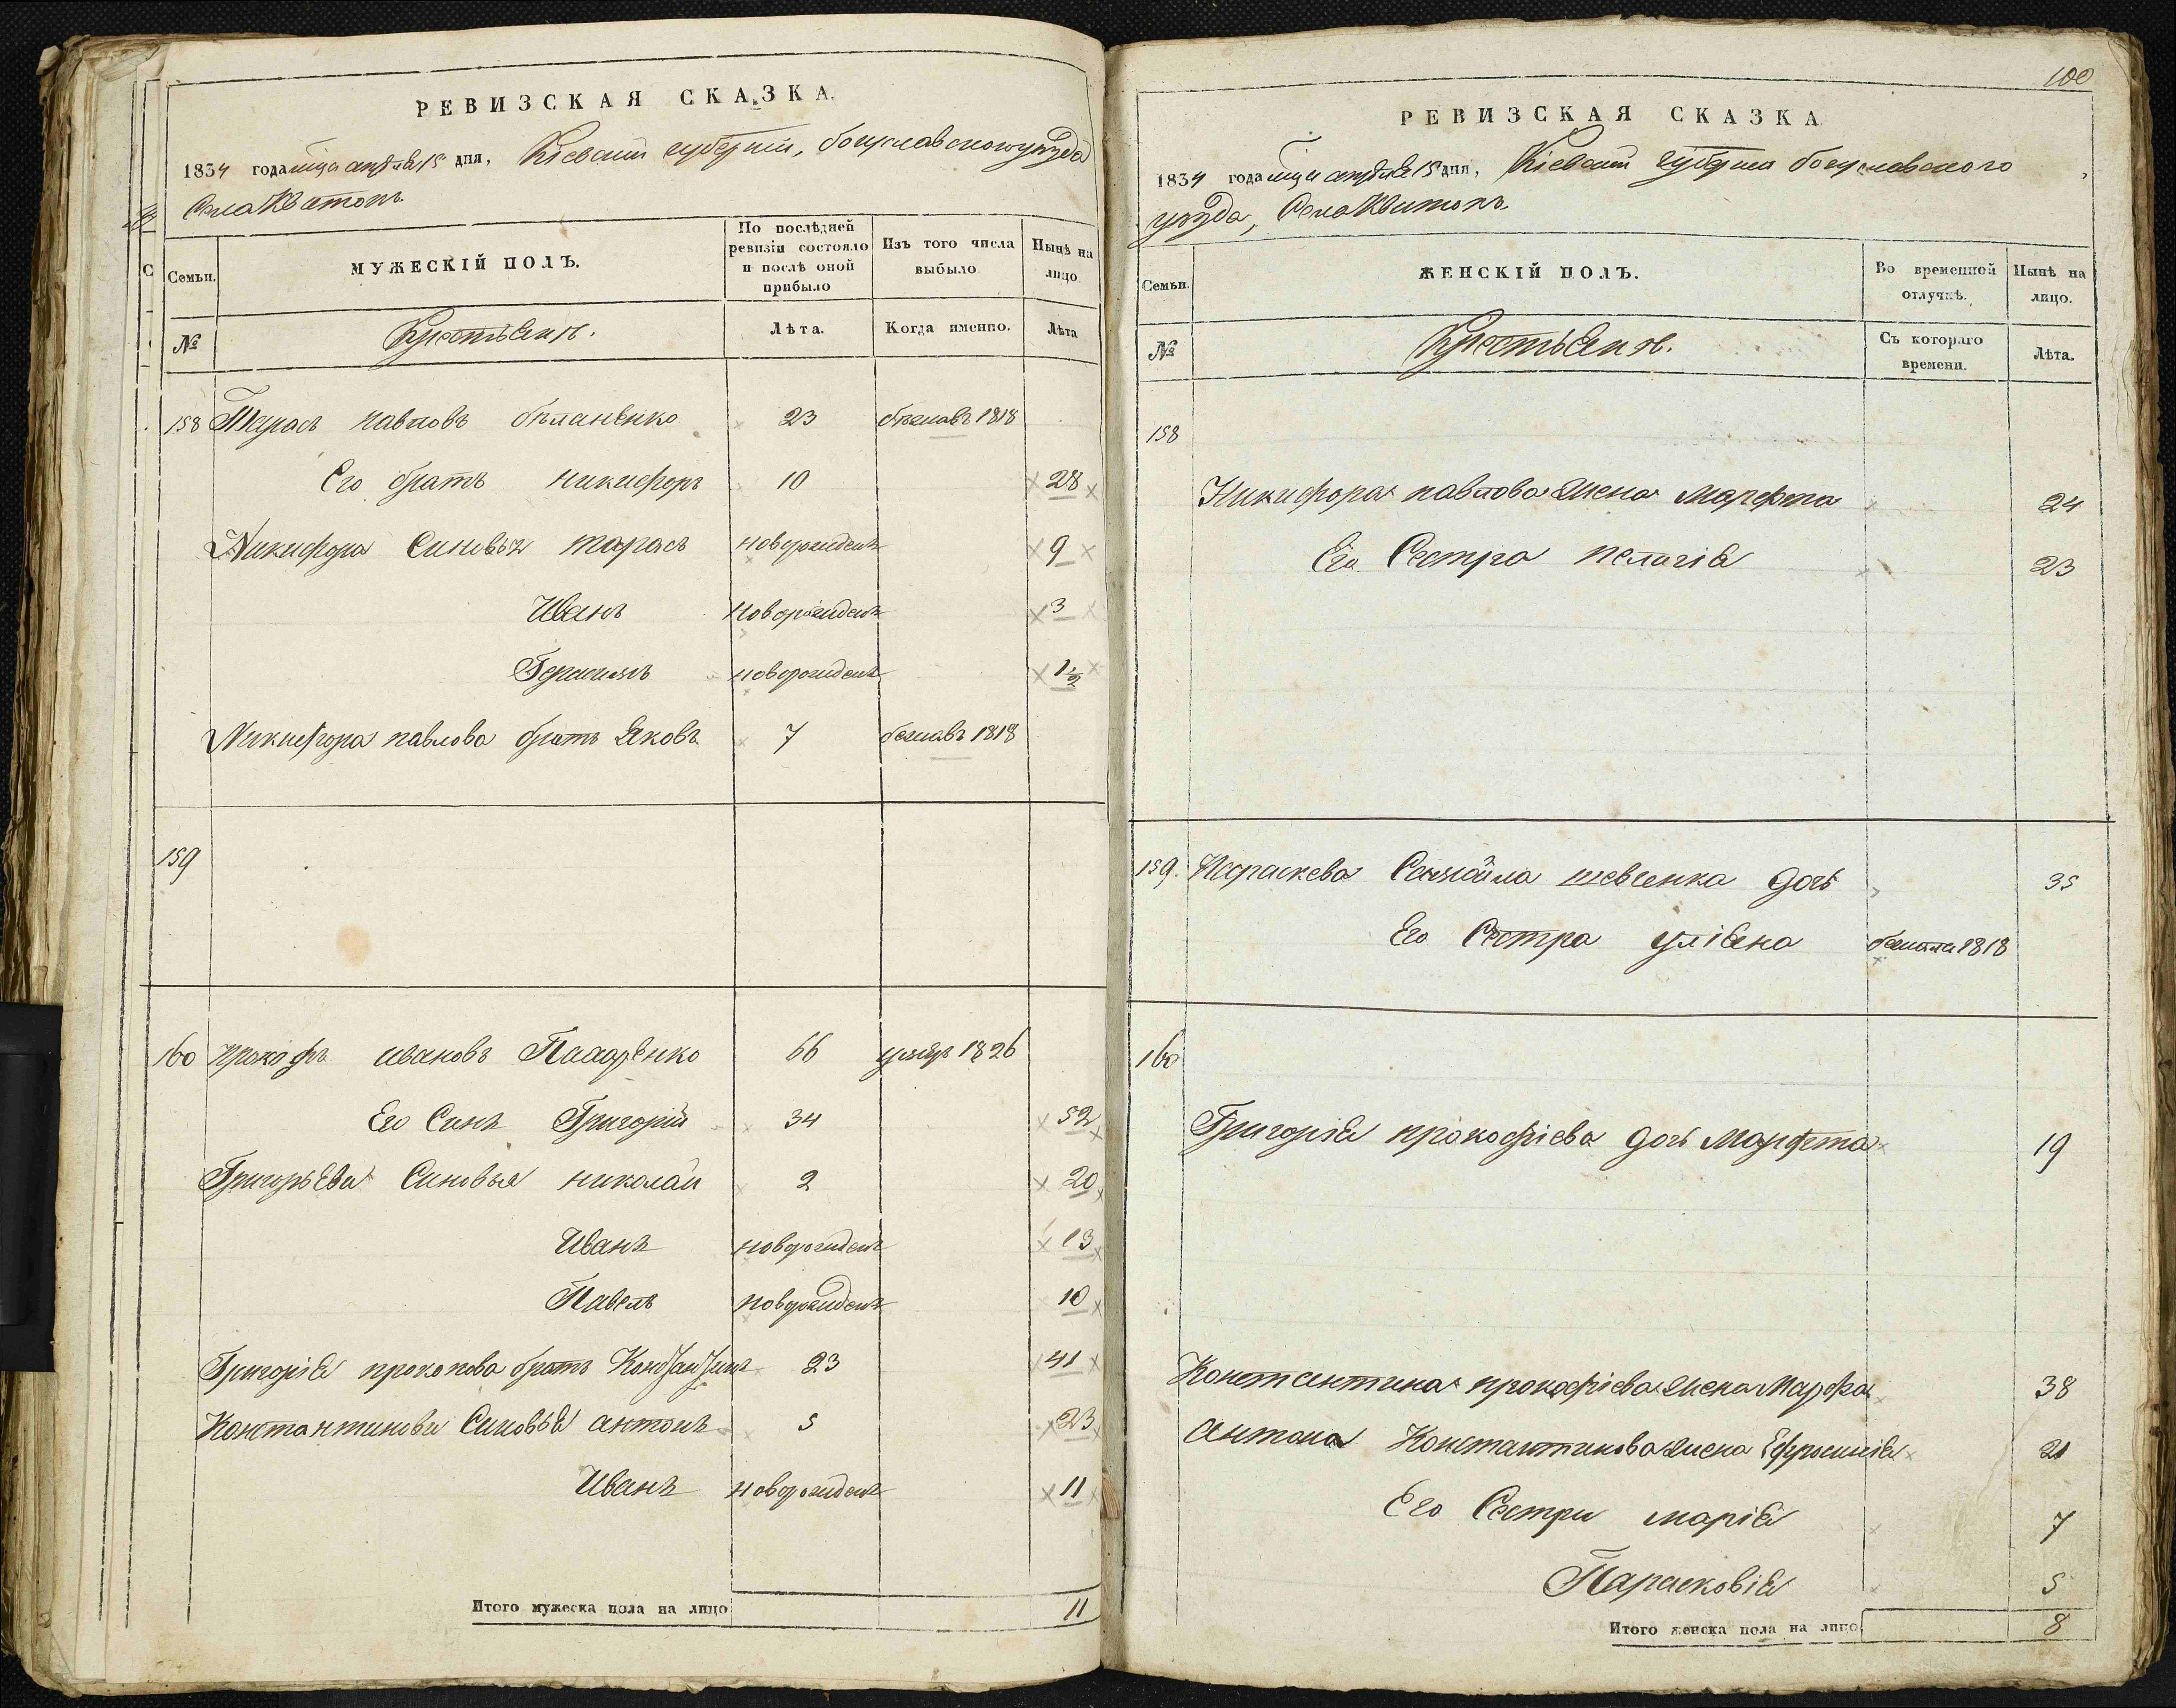 РЕВИЗСКАЯ СКАЗКА.
1834 года мца апреля 15 дня, Кіевской губерніи, богуславского уѣзда
Села Квитокъ
Семьи.
МУЖЕСКІЙ ПОЛЪ.
По послѣдней ревизіи состояло и послѣ оной прибыло
Изъ того числа выбыло
Нынѣ на лицо.
№
Крестьянъ.
Лѣта.
Когда именно.
Лѣта
158 Тарасъ павловъ бѣланенко 23 бѣжавъ 1818
Его братъ никифоръ 10 28
Никифора Синовья тарасъ новорожденъ 9
Иванъ новорожденъ 3
Герасимъ новорожденъ 1½
Никифора павлова братъ Яковъ 7 бежавъ 1818
159
160 прокофъ ивановъ 66 умеръ 1826
Его Синъ Григорій 34 52
Григорьева Синовья николай 2 20
Иванъ новорожденъ 13
Павелъ новорожденъ 10
Григорія прокопова братъ Константинъ 23 41
Константинова Синовья антонъ 5 23
Иванъ новорожденъ 11
Итого мужеска пола на лицо 11
100
РЕВИЗСКАЯ СКАЗКА
1834 года мца апреля 15 дня, Кіевской губерніи богуславского
уѣзда, Села Квитокъ
Семьи.
ЖЕНСКІЙ ПОЛЪ.
Во временной отлучкѣ.
Нынѣ на лицо.
№
Крестьянъ.
Съ котораго времени.
Лѣта.
158
Никифора павлова жена Марфта 24
Его Сестра пелагія 23
159. Параскева Самойла шевченка дочь 35
Его Сестра уліяна бежала 1818
160
Григорія прокофіева дочь Марфта 19
Константина прокофіева жена Марфа 38
Антона Константинова жена Ефросинія 21
Его Сестри марія 7
Парасковія 5
Итого женска пола на лицо 8